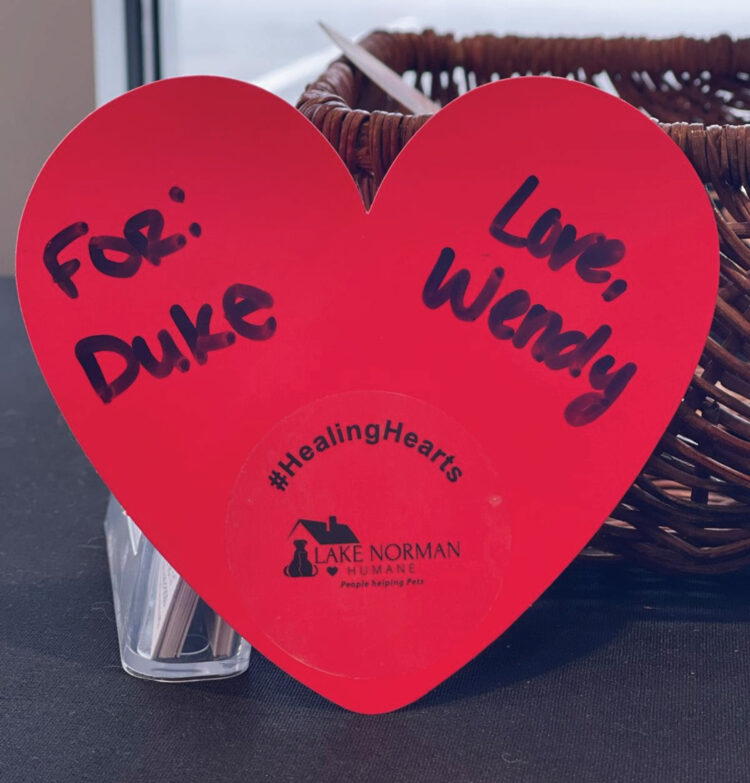 For:
Duke
Love,
Wendy
#HealingHearts
LAKE NORMAN
HUMANE
People helping Pets